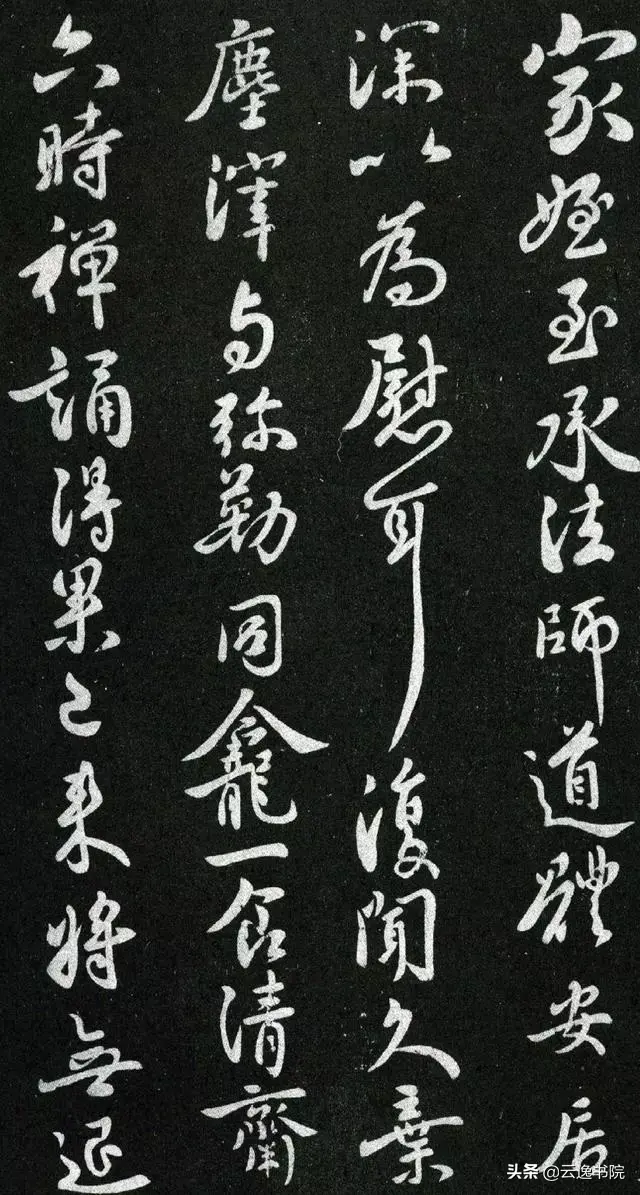 家姪至承法師道體安居
深以為慰耳復聞久棄
塵滓与弥勒同龕一食清齋
六時禪誦得果已来將無退
头条@云逸书院